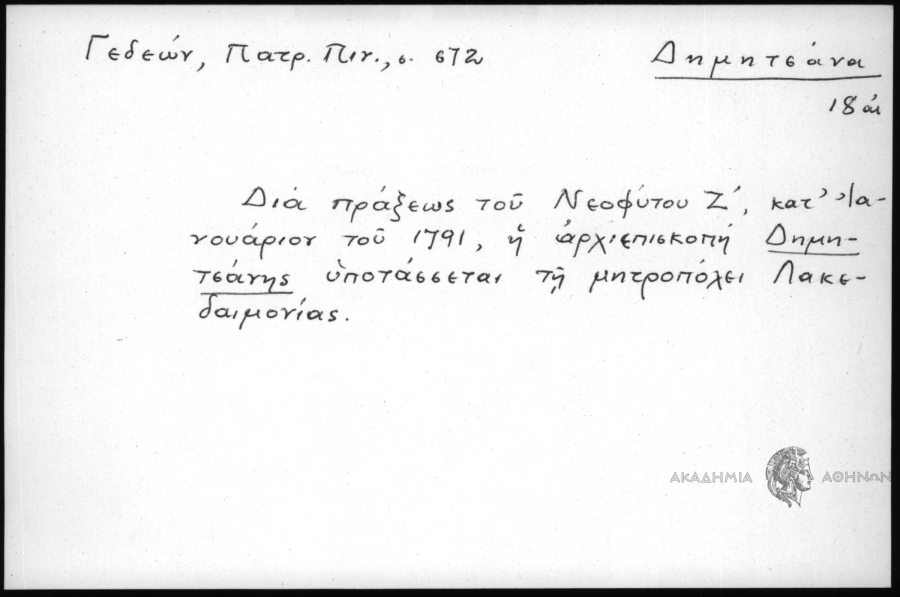 Γεδεών, Πατρ. Πιν., σ. 672
Δημητσάνα
18 αἰ
Διά πράξεως τοῦ Νεοφύτου Ζ', κατ' Ἰα-
νουάριον τοῦ 1791, ἡ ἀρχιεπισκοπή Δημη-
τσάνης ὑποτάσσεται τῇ μητροπόλει Λακε-
δαιμονίας.
ΑΚΑΔΗΜΙΑ ΑΘΗΝΩΝ